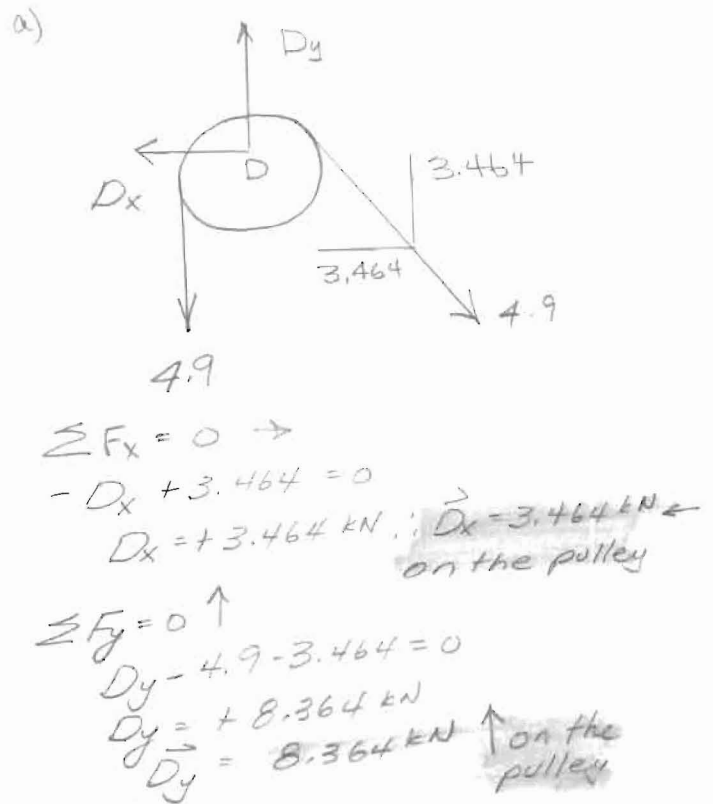 a)
Dy
D
Dx
3.464
3.464
4.9
4.9
ΣFx = 0 →
- Dx + 3.464 = 0
Dx = + 3.464 kN ∴ D⃗x = 3.464 kN ←
on the pulley
ΣFy = 0 ↑
Dy - 4.9 - 3.464 = 0
Dy = + 8.364 kN
D⃗y = 8.364 kN ↑ on the
pulley